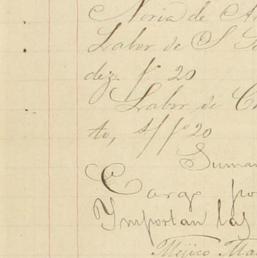 Noria de A
Labor de S
dez. fº 20
Labor de C
to, s/ fº 20
Suma
Cargo po
Ymportan las
Méjico Ma